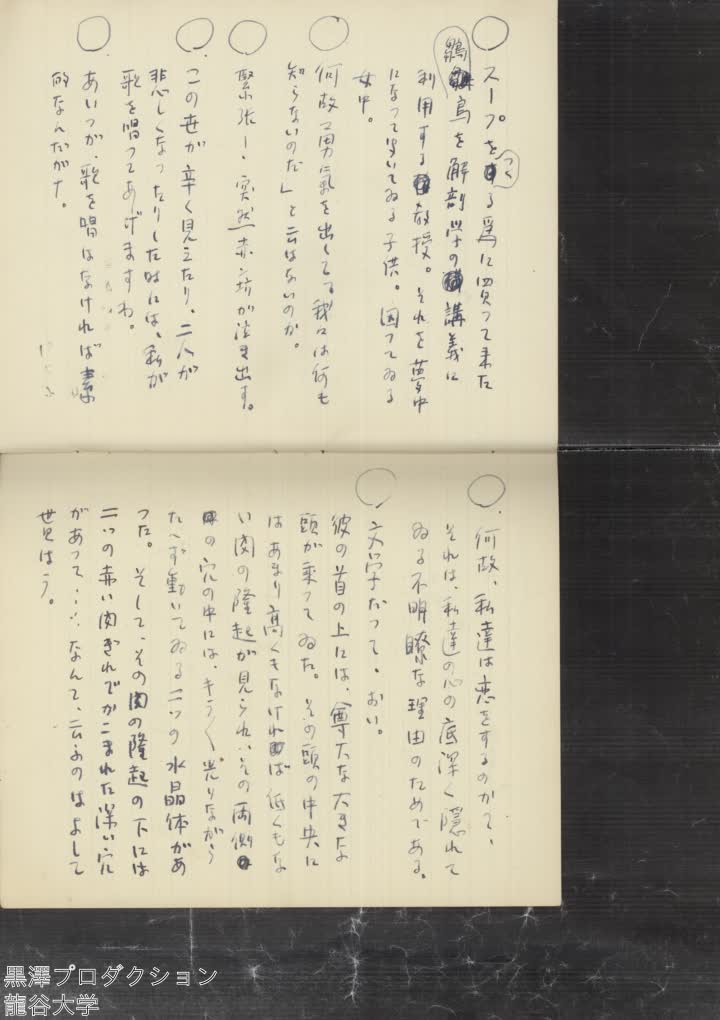 ○ スープをつくる為に買つて来た
鶏を解剖学の講義に
利用する教授。それを夢中
になつて、きいてゐる子供。困つてゐる
女中。
○ 何故「勇氣を出して、我々は何も
知らないのだ」と云はないのか。
○ 緊張―・突然赤ン坊が泣き出す。
○ この世が辛く見えたり、二人が
悲しくなつたりした時には、私が
歌を唱つてあげますわ。
○ あいつが、歌を唱はなければ素
的なんだがナ。
○ 何故、私達は恋をするのかて、
それは、私達の心の底深く隠れて
ゐる不明瞭な理由のためである。
○ 文学だつて、おい。
彼の首の上には、尊大な大きな
頭が乗つてゐた。その頭の中央に
はあまり高くもなければ低くもな
い肉の隆起が見られ、その両側
の穴の中には、キラ〱光りながら
たへず動いてゐる二つの水晶体があ
つた。そして、その肉の隆起の下には
二つの赤い肉ぎれでかこまれた深い穴
があつて‥‥なんて、云ふのはよして
世見はう。
黒澤プロダクション
龍谷大学